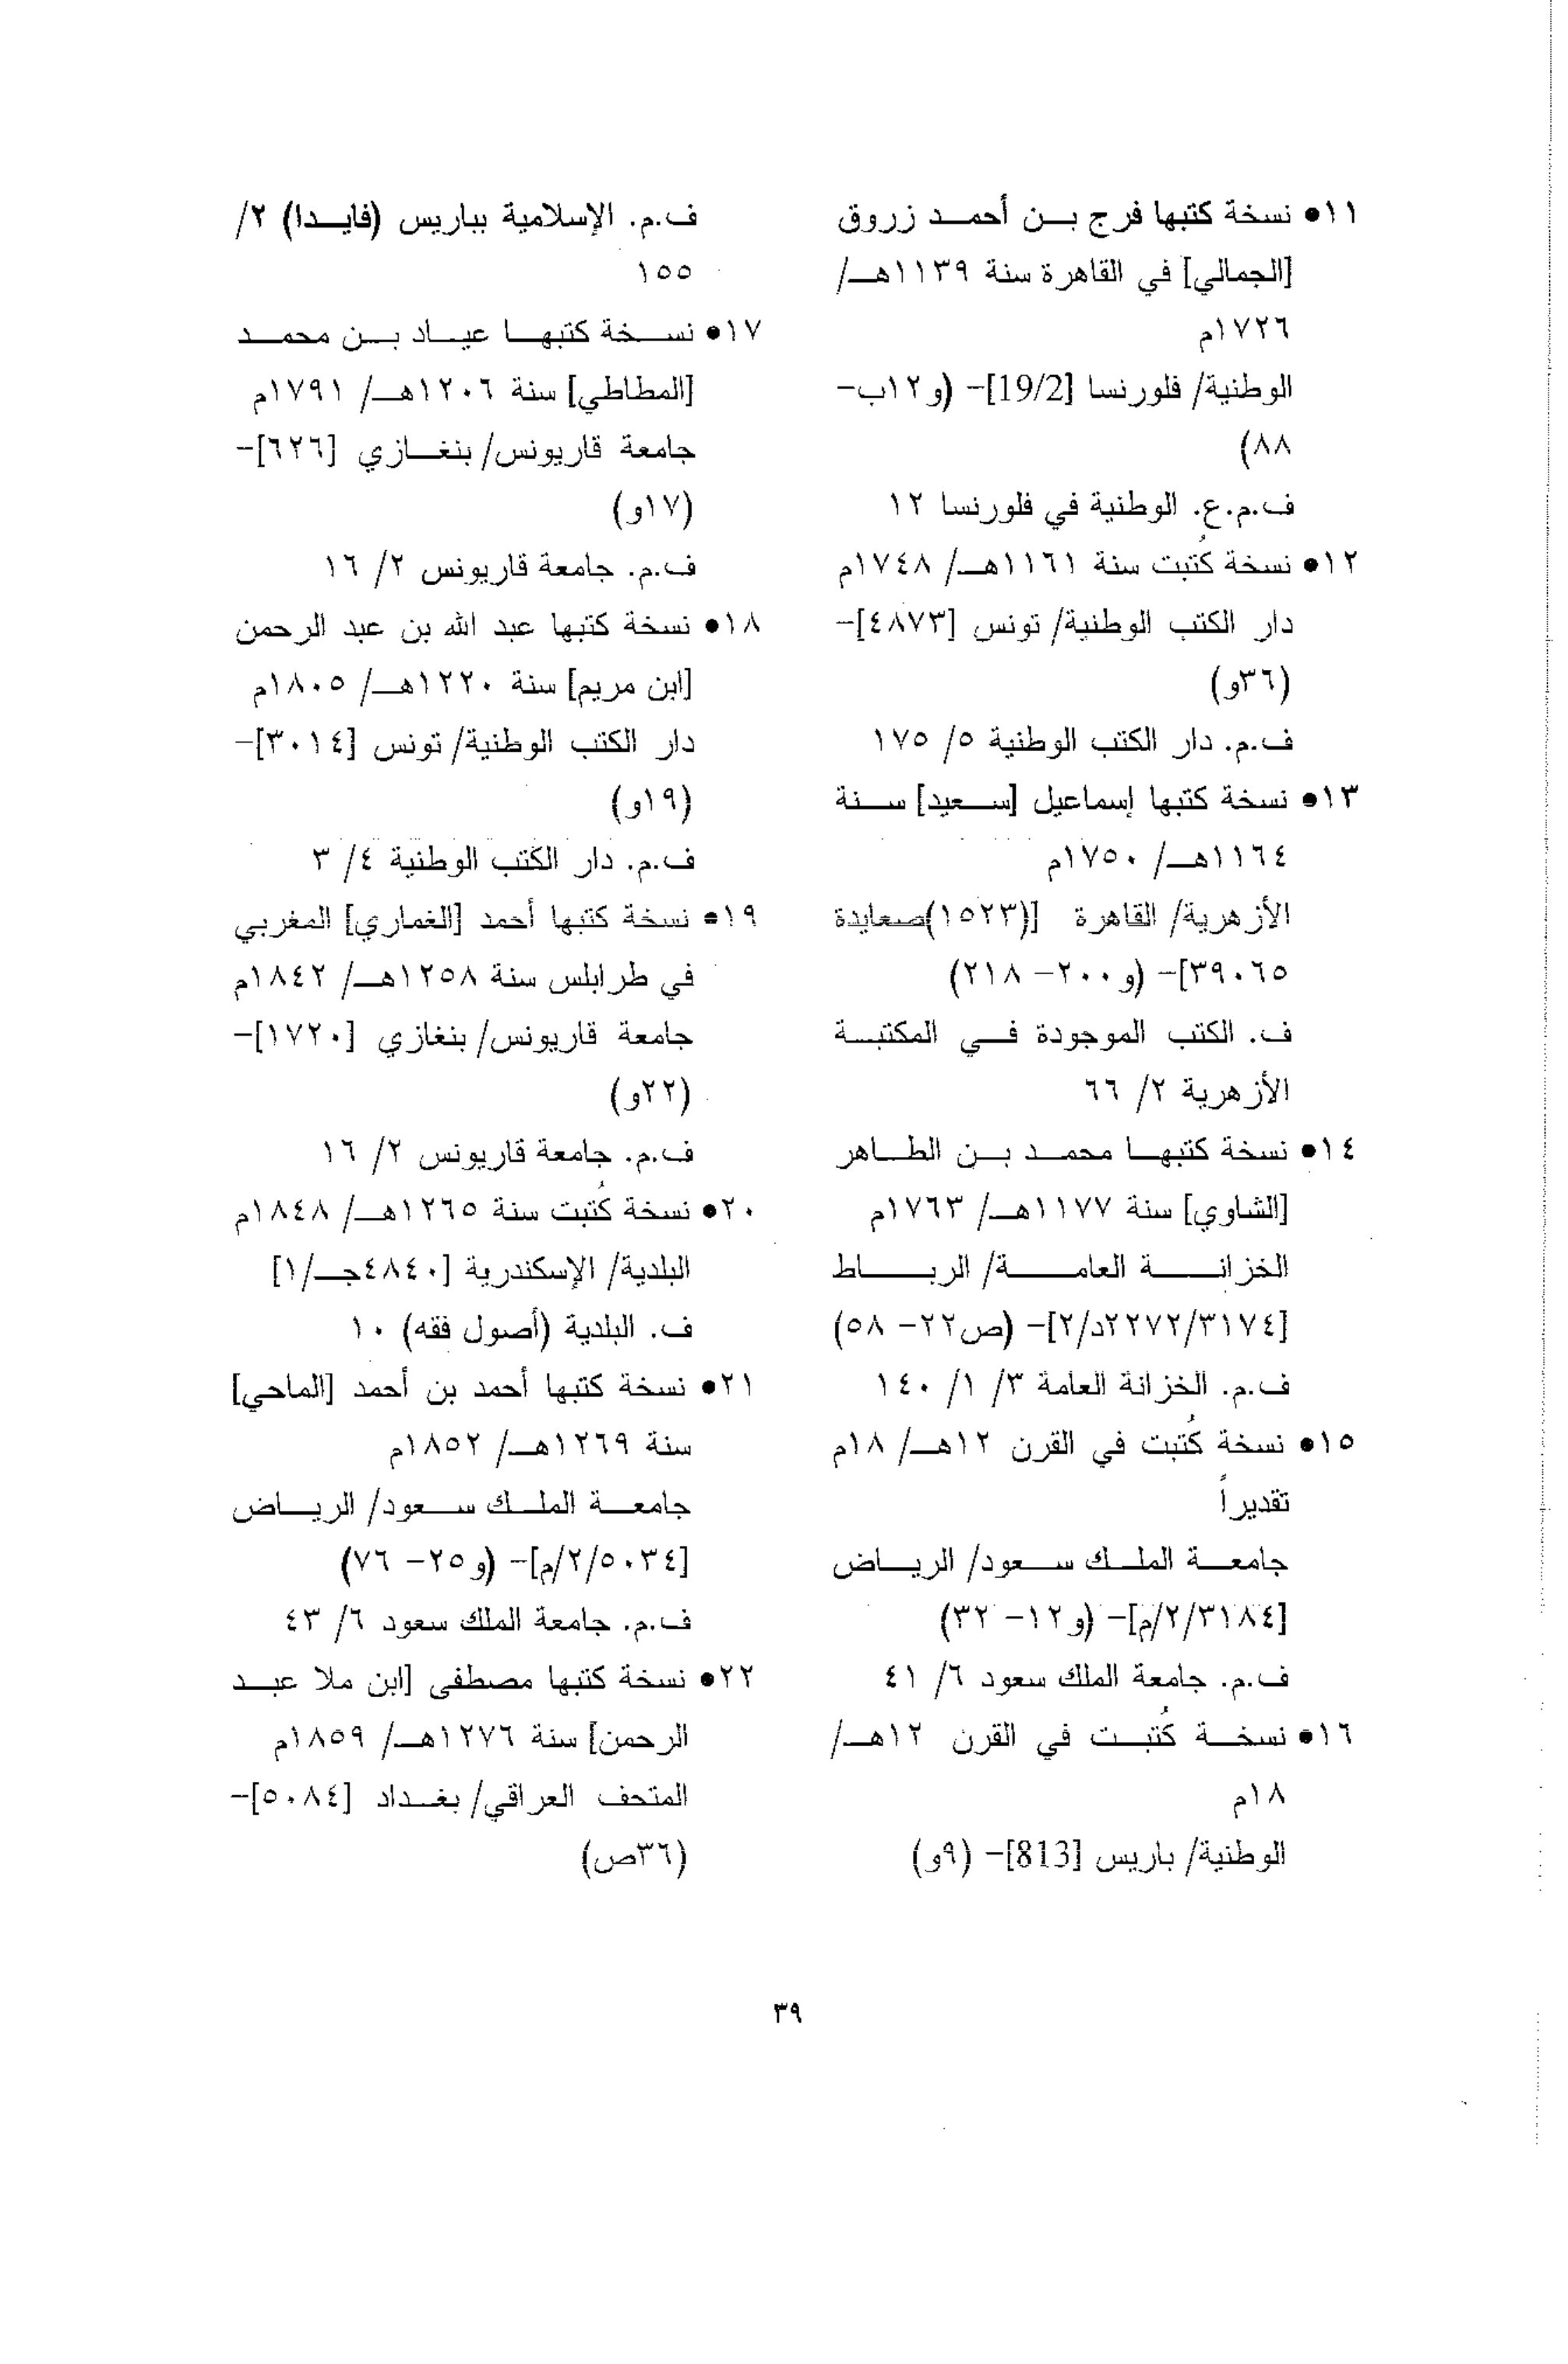 ١١● نسخة كتبها فرج بن أحمد زروق
[الجمالي] في القاهرة سنة ١١٣٩هـ/
١٧٢٦م
الوطنية/ فلورنسا [19/2]- (و١٢ب-
٨٨)
ف.م.ع. الوطنية في فلورنسا ١٢
١٢● نسخة كُتبت سنة ١١٦١هـ/ ١٧٤٨م
دار الكتب الوطنية/ تونس [٤٨٧٣]-
(٣٦و)
ف.م. دار الكتب الوطنية ٥/ ١٧٥
١٣● نسخة كتبها إسماعيل [سعيد] سنة
١١٦٤هـ/ ١٧٥٠م
الأزهرية/ القاهرة [(١٥٢٣)صعايدة
٣٩٠٦٥]- (و٢٠٠- ٢١٨)
ف. الكتب الموجودة في المكتبة
الأزهرية ٢/ ٦٦
١٤● نسخة كتبها محمد بن الطاهر
[الشاوي] سنة ١١٧٧هـ/ ١٧٦٣م
الخزانة العامة/ الرباط
[٢٢٧٢/٣١٧٤د/٢]- (ص٢٢- ٥٨)
ف.م. الخزانة العامة ٣/ ١/ ١٤٠
١٥● نسخة كُتبت في القرن ١٢هـ/ ١٨م
تقديراً
جامعة الملك سعود/ الرياض
[٢/٣١٨٤/م]- (و١٢- ٣٢)
ف.م. جامعة الملك سعود ٦/ ٤١
١٦● نسخة كُتبت في القرن ١٢هـ/
١٨م
الوطنية/ باريس [813]- (٩و)
ف.م. الإسلامية بباريس (فايدا) ٢/
١٥٥
١٧● نسخة كتبها عياد بن محمد
[المطاطي] سنة ١٢٠٦هـ/ ١٧٩١م
جامعة قاريونس/ بنغازي [٦٢٦]-
(١٧و)
ف.م. جامعة قاريونس ٢/ ١٦
١٨● نسخة كتبها عبد الله بن عبد الرحمن
[ابن مريم] سنة ١٢٢٠هـ/ ١٨٠٥م
دار الكتب الوطنية/ تونس [٣٠١٤]-
(١٩و)
ف.م. دار الكتب الوطنية ٤/ ٣
١٩● نسخة كتبها أحمد [الغماري] المغربي
في طرابلس سنة ١٢٥٨هـ/ ١٨٤٢م
جامعة قاريونس/ بنغازي [١٧٢٠]-
(٢٢و)
ف.م. جامعة قاريونس ٢/ ١٦
٢٠● نسخة كُتبت سنة ١٢٦٥هـ/ ١٨٤٨م
البلدية/ الإسكندرية [٤٨٤٠جـ/١]
ف. البلدية (أصول فقه) ١٠
٢١● نسخة كتبها أحمد بن أحمد [الماحي]
سنة ١٢٦٩هـ/ ١٨٥٢م
جامعة الملك سعود/ الرياض
[٢/٥٠٣٤/م]- (و٢٥- ٧٦)
ف.م. جامعة الملك سعود ٦/ ٤٣
٢٢● نسخة كتبها مصطفى [ابن ملا عبد
الرحمن] سنة ١٢٧٦هـ/ ١٨٥٩م
المتحف العراقي/ بغداد [٥٠٨٤]-
(٣٦ص)
٣٩